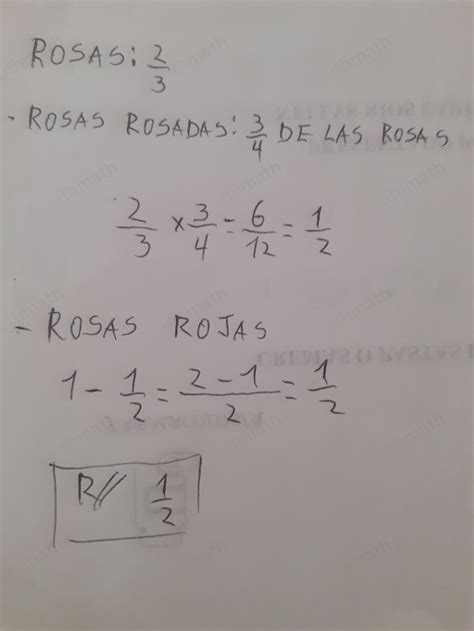 ROSAS: 2/3
- ROSAS ROSADAS: 3/4 DE LAS ROSAS
2/3 x 3/4 = 6/12 = 1/2
- ROSAS ROJAS
1 - 1/2 = 2-1/2 = 1/2
R// 1/2